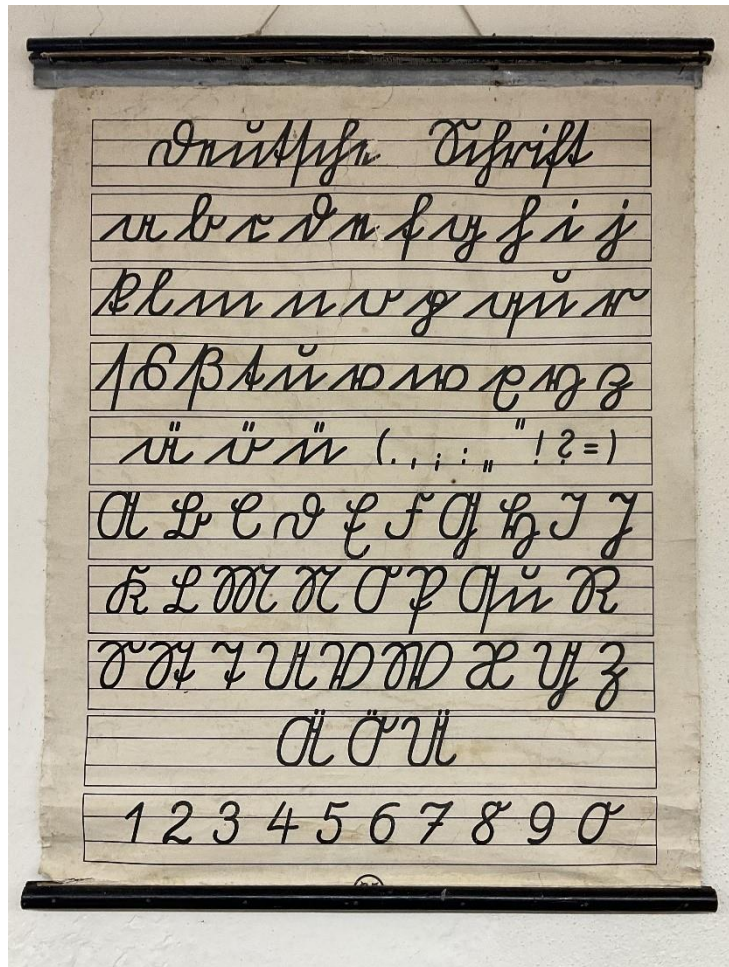 Deutsche Schrift
a b c d e f g h i j
k l m n o p qu r
ſ s ß t u v w x y z
ä ö ü (. , ; : „ " ! ? = )
A B C D E F G H I J
K L M N O P Qu R
S St T U V W X Y Z
Ä Ö Ü
1 2 3 4 5 6 7 8 9 0